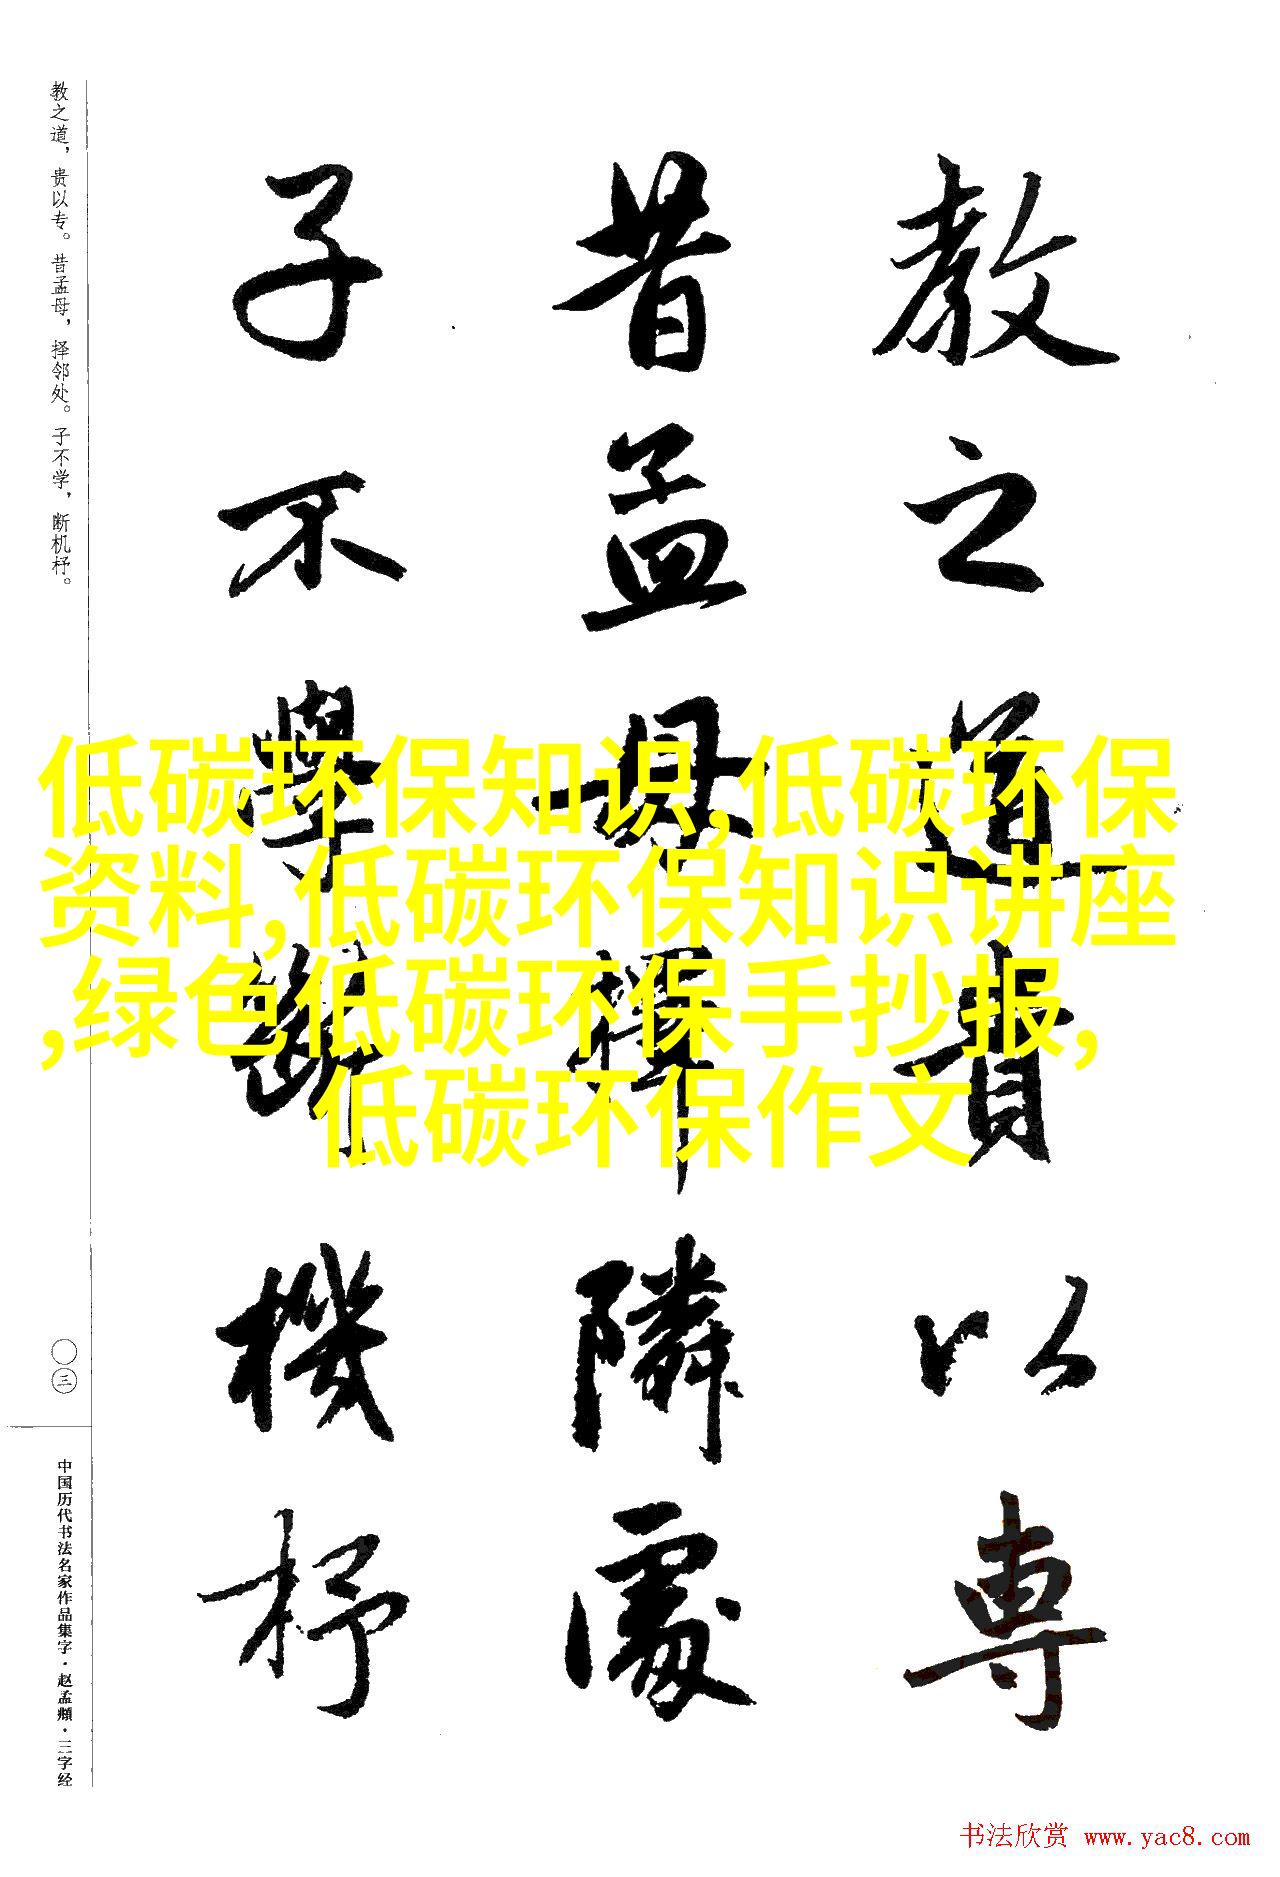 教之道貴以専
昔孟母擇隣處
子不學斷機杼
教之道，贵以专。昔孟母，择邻处。子不学，断机杼。
〇三
中国历代书法名家作品集字·赵孟頫·三字经
低碳环保知识,低碳环保
资料,低碳环保知识讲座
,绿色低碳环保手抄报,
低碳环保作文
书法欣赏 www.yac8.com